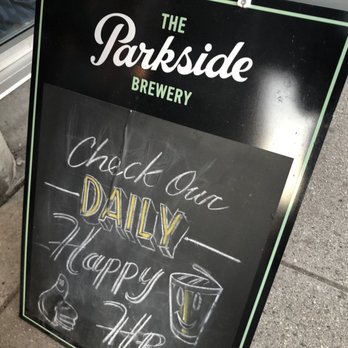 THE
Parkside
BREWERY
Check Our
DAILY
Happy
HR